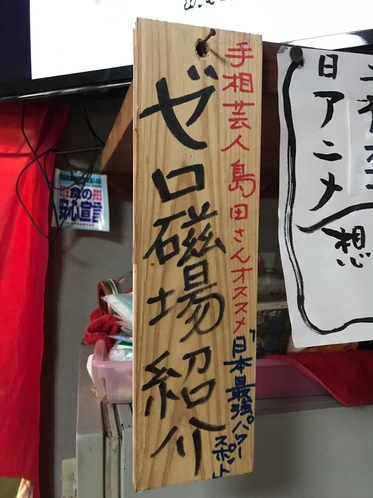 手相芸人 島田さんオススメ
ゼロ磁場 紹介
日本最強パワー
スポット
食の
安心宣言
日アニメ
想